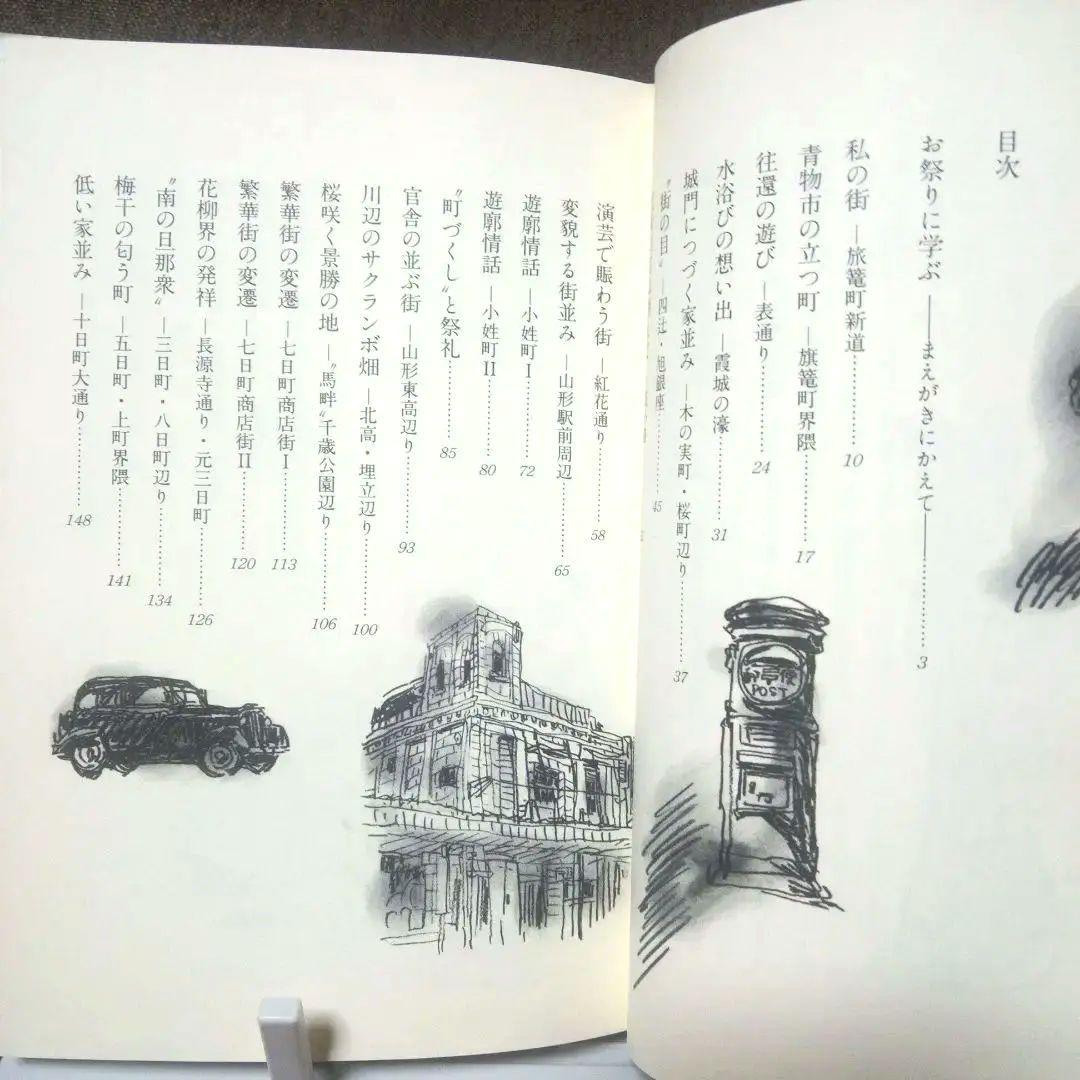 目次
お祭りに学ぶ ――まえがきにかえて――…………3
私の街 ―旅篭町新道…………10
青物市の立つ町 ―旗篭町界隈…………17
往還の遊び ―表通り…………24
水浴びの想い出 ―霞城の濠…………31
城門につづく家並み ―木の実町・桜町辺り…………37
〝街の目〟 ―四辻・旭銀座…………45
演芸で賑わう街 ―紅花通り…………58
変貌する街並み ―山形駅前周辺…………65
遊廓情話 ―小姓町Ⅰ…………72
遊廓情話 ―小姓町Ⅱ…………80
〝町づくし〟と祭礼…………85
官舎の並ぶ街 ―山形東高辺り…………93
川辺のサクランボ畑 ―北高・埋立辺り…………100
桜咲く景勝の地 ―〝馬畔〟千歳公園辺り…………106
繁華街の変遷 ―七日町商店街Ⅰ…………113
繁華街の変遷 ―七日町商店街Ⅱ…………120
花柳界の発祥 ―長源寺通り・元三日町…………126
〝南の旦那衆〟 ―三日町・八日町辺り…………134
梅干の匂う町 ―五日町・上町界隈…………141
低い家並み ―十日町大通り…………148
POST